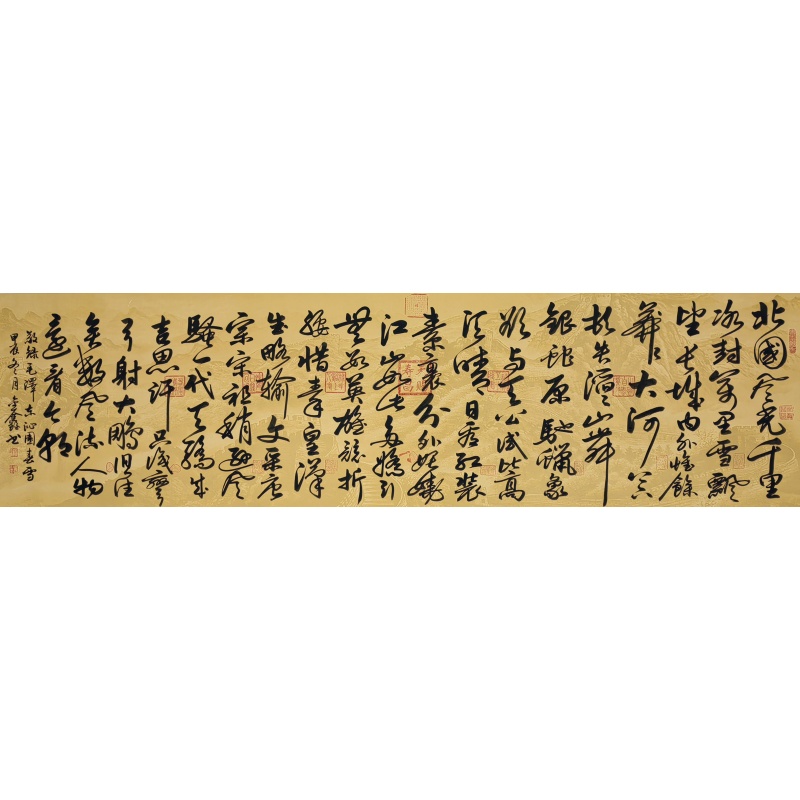 北國風光千里
冰封萬里雪飄
望長城内外惟餘
莽莽大河上下
頓失滔滔山舞
銀蛇原馳蠟象
欲与天公試比高
須晴日看紅裝
素裹分外妖嬈
江山如此多嬌引
無數英雄競折
腰惜秦皇漢
武略輸文采唐
宗宋祖稍遜風
騷一代天驕成
吉思汗只識彎
弓射大鵰俱往
矣數風流人物
還看今朝
敬錄毛澤東沁園春雪
甲辰冬月 書